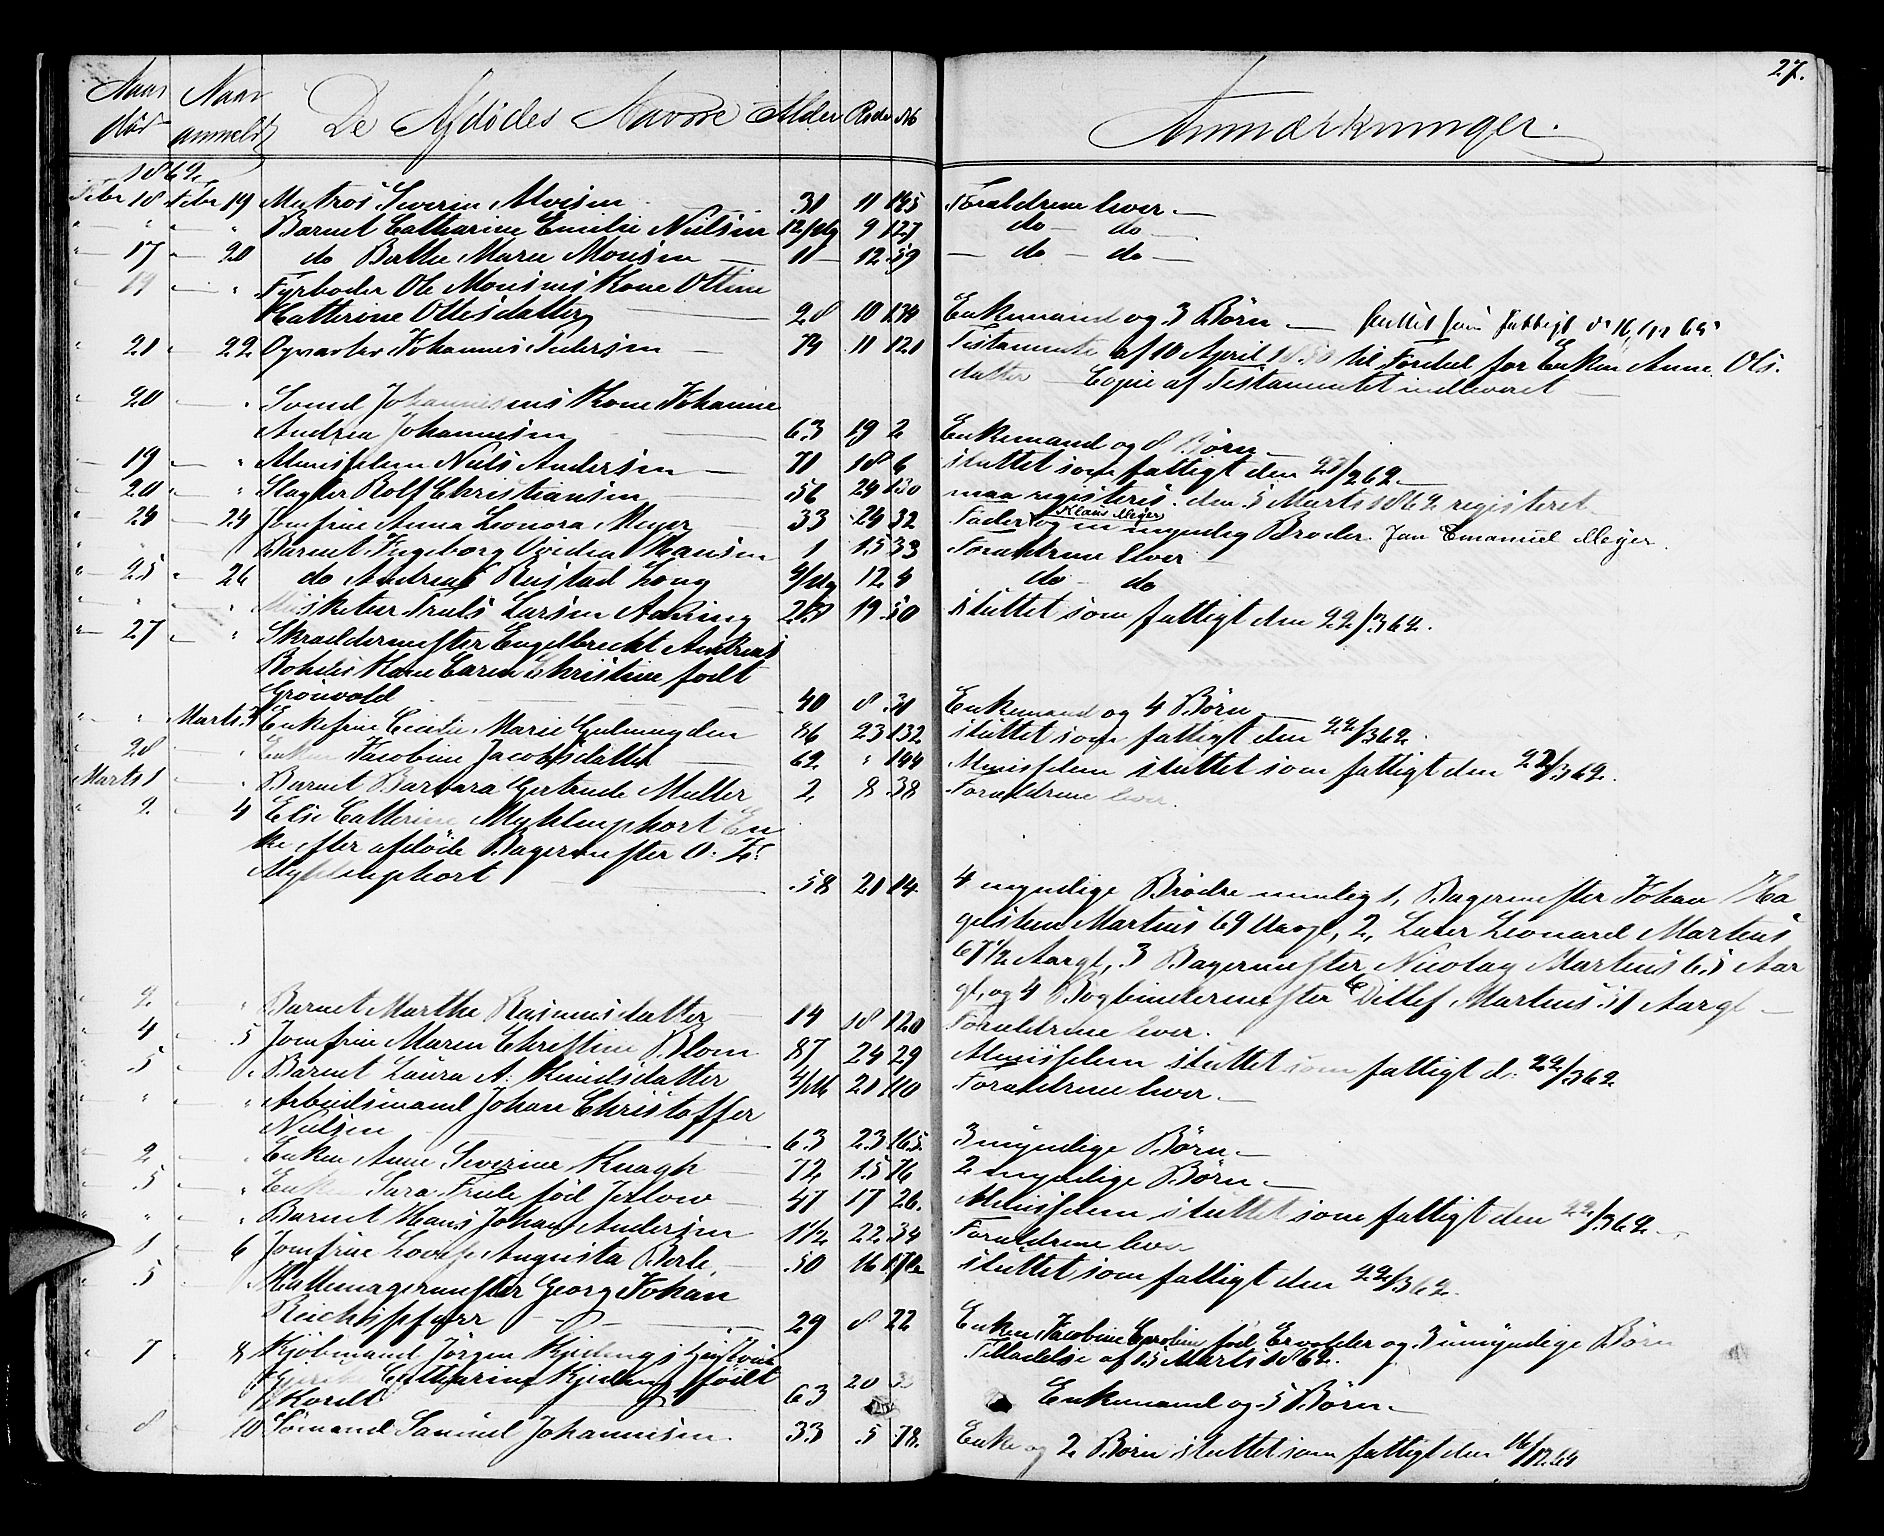 27.
Naar Naar De Afdødes Navne Alder Rode No Anmærkninger.
død anmeldt
1862
Febr 18 Febr 19 Matros Severin Alvisen 31 11 195 Forældrene lever.
" " " Barnet Catharine Emilie Nielsen 12/Mg 9 127 do do
" 17 20 do Berthe Marie Monsen 11 12 59 do do
" 19 " Fyrbøder Ole Monsens Kone Olline
Catterine Ottesdatter 28 10 134 Enkemand og 3 Børn sluttet som fattigt
" 21 22 Johannes Pedersen 79 11 121 Testamente af 10 April til Fordel for Enken Anne Ols
datter Copie af Testamentet indleveret
20 " Svend Johannesens Kone Johanne
Andrea Johannesen 63 19 2 Enkemand og 8 Børn
19 " Almisselem Niels Andersen 71 18 6 sluttet som fattigt den 27/2 62
20 " Slagter Rolf Christiansen 56 24 130 maa registeres. den 5 Marts 1862 registeret
24 24 Jomfrue Anna Leonora Meyer 33 24 32 Fader Klaus Meyer og en myndig Broder Jan Emanuel Meyer.
" " Barnet Ingeborg Ovidia Hansen 1 15 33 Forældrene lever
25 26 do Andreas Rustad Long 4/Mg 12 4 do do
" " Musketer Truls Larsen 19 50 sluttet som fattigt den 22/3 62.
27 " Skræddermester Engelbrecht Andreas
Kone Caren Christine født
Grønvold 40 8 31 Enkemand og 4 Børn
" " Marts 3 Enkefrue Cecilie Marie 86 23 132 sluttet som fattigt den 22/3 62
28 " Enken Jacobine Jacobsdatter 62 " 144 Almisselem sluttet som fattigt den 22/3 62.
Marts 1 " Barnet Barbara Gertrude Muller 2 8 38 Forældrene lever.
" 2 4 Else Catterine Myhlenphort En
ke efter afdøde Bagermester O. H.
Myhlenphort 58 21 14 4 myndige Brødre nemlig 1, Bagermester Johan Ha
gelsteen Martens 69 Aargl, 2, Leonard Martens
67 1/2 Aargl, 3 Bagermester Nicolay Martens 65 Aar
gl, og 4 Bogbindermester Ditlef Martens 51 Aargl
2 " Barnet Marthe Rasmusdatter 14 18 120 Forældrene lever.
4 5 Jomfrue Maren Christine Blom 87 24 29 Almisselem sluttet som fattigt d. 22/3 62
5 " Barnet Laura A. Knudsdatter 4/Mg 21 110 Forældrene lever.
" " Arbeidsmand Johan Christoffer
Nielsen 63 23 165 3 myndige Børn
2 " Enken Anne Severine Knagh 72 15 76 2 myndige Børn
5 " Enken Sara Friele fød 47 17 26 Almisselem sluttet som fattigt den 22/3 62
" " Barnet Hans Johan Andersen 1 1/2 22 34 Forældrene lever
1 6 Jomfrue Lovise Augusta Berle 50 16 sluttet som fattigt den 22/3 62.
5 " Hattemagermester Georg Johan
29 8 22 Enken Jacobine Caroline fød og 3 umyndige Børn
Tilladelse af 15 Marts 1862.
7 8 Kjøbmand Jørgen
Catharine født
63 20 Enkemand og 5 Børn
8 10 Sømand Samuel Johannesen. 33 5 78 Enke og 2 Børn sluttet som fattigt den 16/12 64